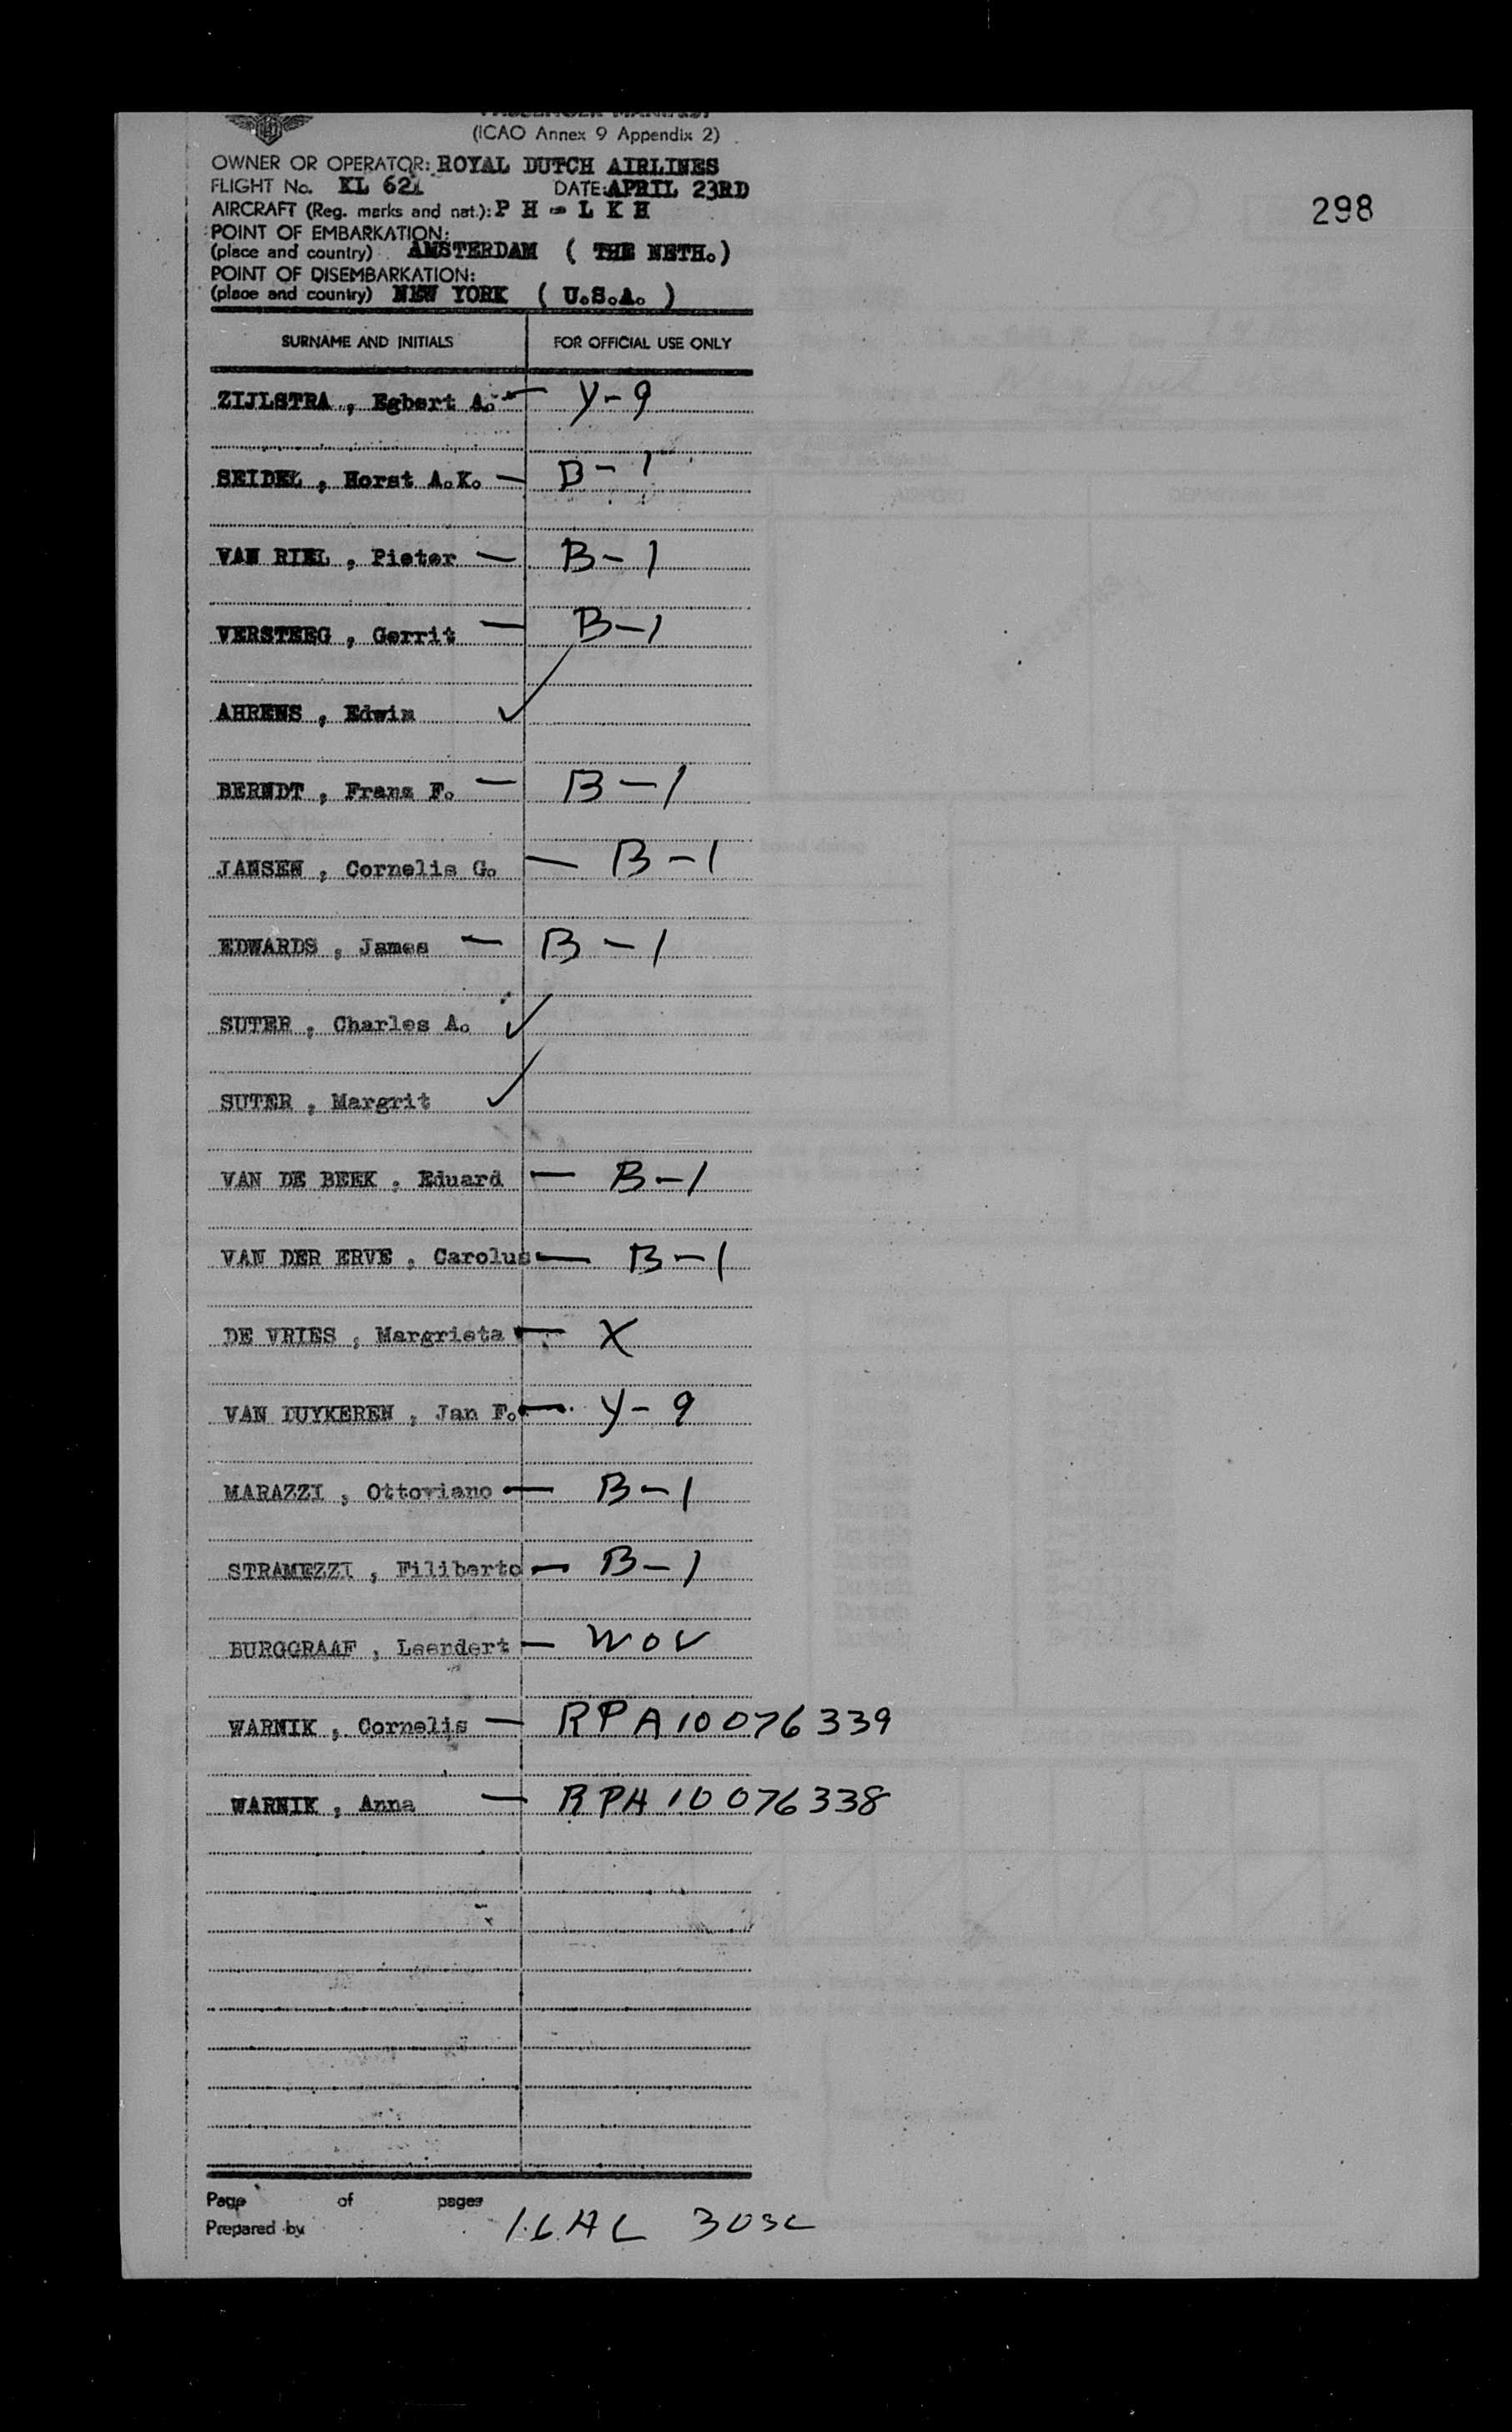 (ICAO Annex 9 Appendix 2)
OWNER OR OPERATOR: ROYAL DUTCH AIRLINES
FLIGHT No. KL 621 DATE: APRIL 23RD
298
AIRCRAFT (Reg. marks and nat.): P H - L K H
POINT OF EMBARKATION:
(place and country) AMSTERDAM ( THE NETH.)
POINT OF DISEMBARKATION:
(place and country) NEW YORK ( U.S.A. )
SURNAME AND INITIALS FOR OFFICIAL USE ONLY
ZIJLSTRA , Egbert A. — Y-9
SEIDEL , Horst A.K. — B-1
VAN RIEL , Pieter — B-1
VERSTEEG , Gerrit — B-1
AHRENS , Edwin ✓
BERNDT , Franz F. — B-1
JANSEN , Cornelis G. — B-1
EDWARDS , James — B-1
SUTER , Charles A. ✓
SUTER , Margrit ✓
VAN DE BEEK , Eduard — B-1
VAN DER ERVE , Carolus — B-1
DE VRIES , Margrieta — X
VAN DUYKEREN , Jan F. — Y-9
MARAZZI , Ottoviano — B-1
STRAMEZZI , Filiberto — B-1
BURGGRAAF , Leendert — WOV
WARNIK , Cornelis — RPA10076339
WARNIK , Anna — RPA10076338
Page of pages
Prepared by